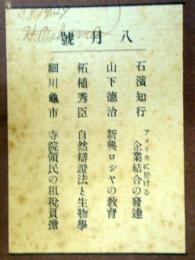 八月號
石濱知行 アメリカに於ける企業結合の發達
山下德治 新興ロシヤの敎育
柘植秀臣 自然辯證法と生物學
細川龜市 寺院領民の租稅負擔